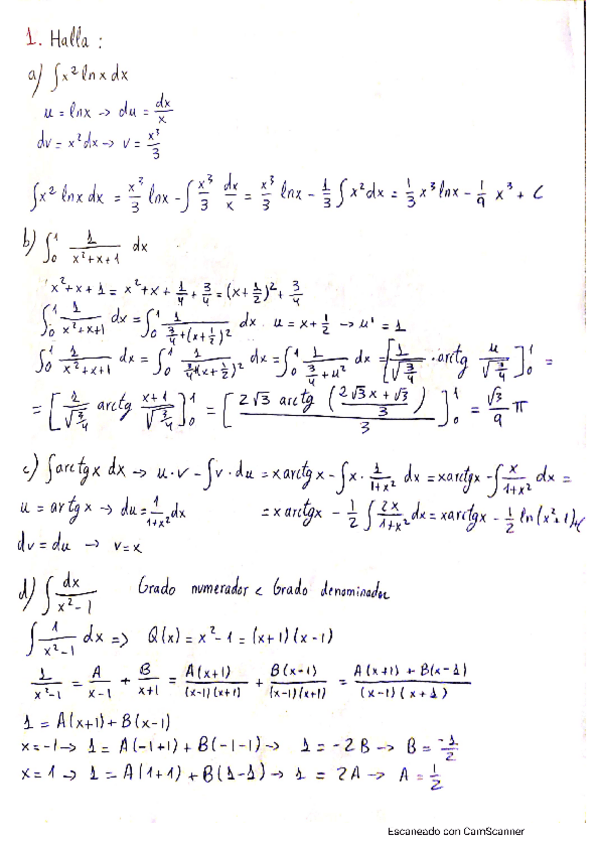 1. Halla :
a) ∫x² ln x dx
u = lnx → du = dx/x
dv = x²dx → v = x³/3
∫x² lnx dx = x³/3 lnx - ∫ x³/3 dx/x = x³/3 lnx - 1/3 ∫ x² dx = 1/3 x³ lnx - 1/9 x³ + C
b) ∫₀¹ 1/(x²+x+1) dx
x²+x+1 = x²+x+1/4+3/4 = (x+1/2)²+3/4
∫₀¹ 1/(x²+x+1) dx = ∫₀¹ 1/(3/4+(x+1/2)²) dx . u = x+1/2 → u' = 1
∫₀¹ 1/(x²+x+1) dx = ∫₀¹ 1/(3/4+(x+1/2)²) dx = ∫₀¹ 1/(3/4+u²) dx = [1/√(3/4) · arctg u/√(3/4)]₀¹ =
= [1/√(3/4) arctg (x+1)/√(3/4)]₀¹ = [2√3 arctg ((2√3x+√3)/3)/3]₀¹ = √3/9 π
c) ∫arctgx dx → u·v - ∫v·du = xarctgx - ∫x· 1/(1+x²) dx = xarctgx - ∫ x/(1+x²) dx =
u = artgx → du = 1/(1+x²) dx = xarctgx - 1/2 ∫ 2x/(1+x²) dx = xarctgx - 1/2 ln(x²+1)+C
dv = du → v=x
d) ∫ dx/(x²-1) Grado numerador < Grado denominador
∫ 1/(x²-1) dx => Q(x) = x²-1 = (x+1)(x-1)
1/(x²-1) = A/(x-1) + B/(x+1) = A(x+1)/((x-1)(x+1)) + B(x-1)/((x-1)(x+1)) = (A(x+1) + B(x-1))/((x-1)(x+1))
1 = A(x+1) + B(x-1)
x=-1 → 1 = A(-1+1) + B(-1-1) → 1 = -2B → B = -1/2
x=1 → 1 = A(1+1) + B(1-1) → 1 = 2A → A = 1/2
Escaneado con CamScanner